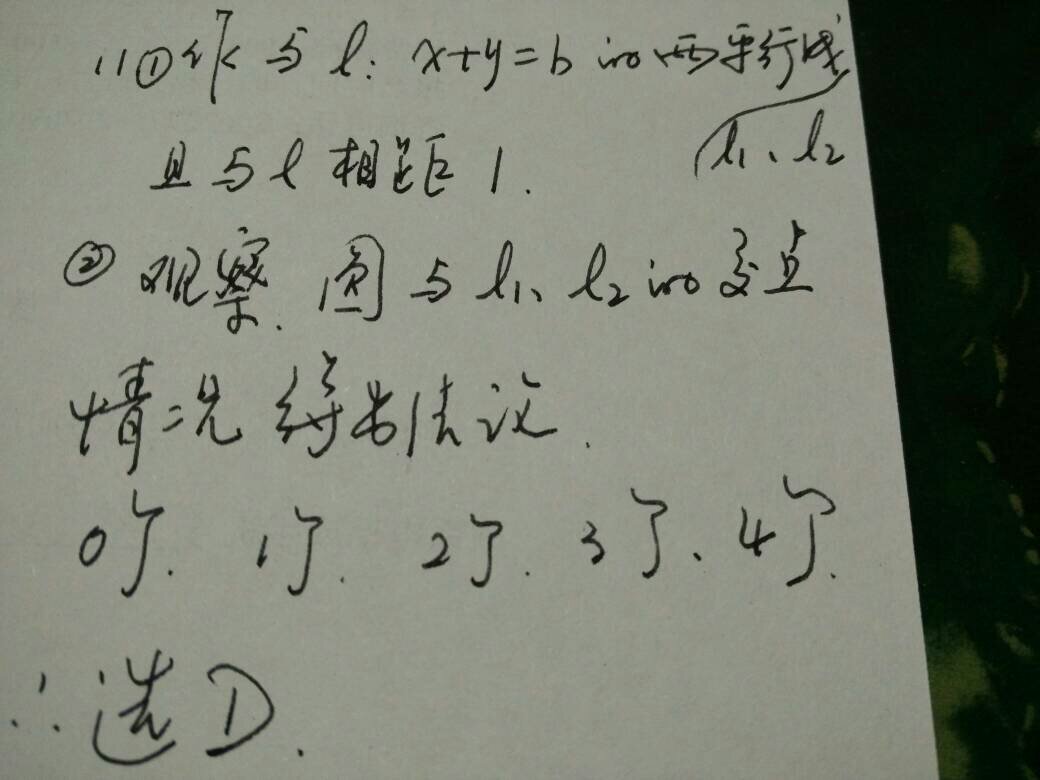 11①作与l:x+y=b的两平行线
l₁、l₂
且与l相距1.
②观察.圆与l₁、l₂的交点
情况得出结论.
0个.1个.2个.3个、4个.
∴选D.